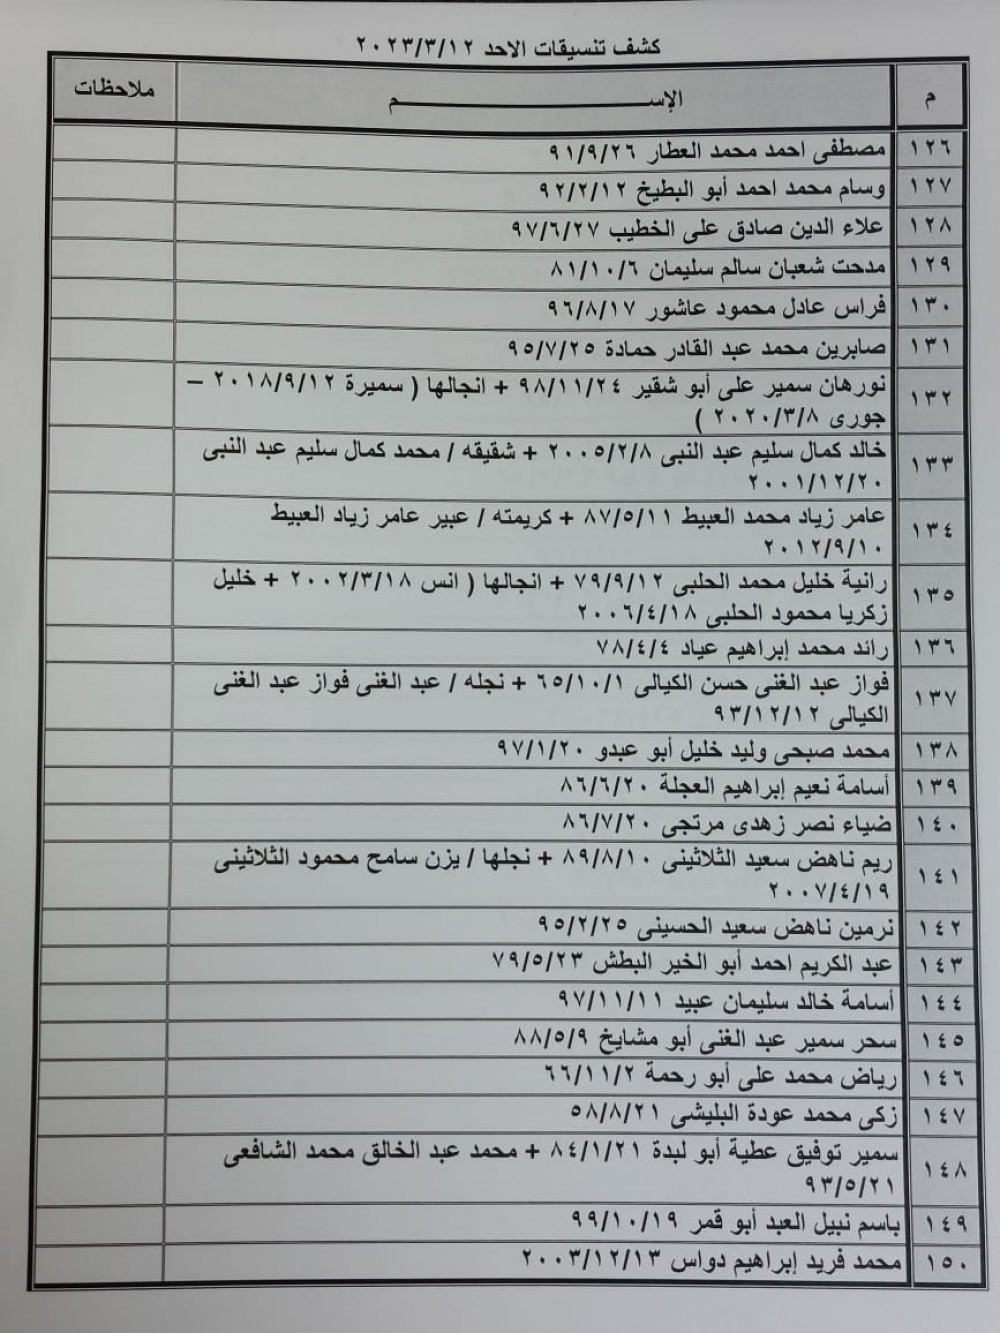 كشف تنسيقات الاحد ٢٠٢٣/٣/١٢
م الإســـــــــــــــــم ملاحظات
١٢٦ مصطفى احمد محمد العطار ٩١/٩/٢٦
١٢٧ وسام محمد احمد أبو البطيخ ٩٢/٢/١٢
١٢٨ علاء الدين صادق على الخطيب ٩٧/٦/٢٧
١٢٩ مدحت شعبان سالم سليمان ٨١/١٠/٦
١٣٠ فراس عادل محمود عاشور ٩٦/٨/١٧
١٣١ صابرين محمد عبد القادر حمادة ٩٥/٧/٢٥
١٣٢ نورهان سمير على أبو شقير ٩٨/١١/٢٤ + انجالها ( سميرة ٢٠١٨/٩/١٢ –
جورى ٢٠٢٠/٣/٨ )
١٣٣ خالد كمال سليم عبد النبى ٢٠٠٥/٢/٨ + شقيقه / محمد كمال سليم عبد النبى
٢٠٠١/١٢/٢٠
١٣٤ عامر زياد محمد العبيط ٨٧/٥/١١ + كريمته / عبير عامر زياد العبيط
٢٠١٢/٩/١٠
١٣٥ رانية خليل محمد الحلبى ٧٩/٩/١٢ + انجالها ( انس ٢٠٠٢/٣/١٨ + خليل
زكريا محمود الحلبى ٢٠٠٦/٤/١٨
١٣٦ رائد محمد إبراهيم عياد ٧٨/٤/٤
١٣٧ فواز عبد الغنى حسن الكيالى ٦٥/١٠/١ + نجله / عبد الغنى فواز عبد الغنى
الكيالى ٩٣/١٢/١٢
١٣٨ محمد صبحى وليد خليل أبو عبدو ٩٧/١/٢٠
١٣٩ أسامة نعيم إبراهيم العجلة ٨٦/٦/٢٠
١٤٠ ضياء نصر زهدى مرتجى ٨٦/٧/٢٠
١٤١ ريم ناهض سعيد الثلاثينى ٨٩/٨/١٠ + نجلها / يزن سامح محمود الثلاثينى
٢٠٠٧/٤/١٩
١٤٢ نرمين ناهض سعيد الحسينى ٩٥/٢/٢٥
١٤٣ عبد الكريم احمد أبو الخير البطش ٧٩/٥/٢٣
١٤٤ أسامة خالد سليمان عبيد ٩٧/١١/١١
١٤٥ سحر سمير عبد الغنى أبو مشايخ ٨٨/٥/٩
١٤٦ رياض محمد على أبو رحمة ٦٦/١١/٢
١٤٧ زكى محمد عودة البليشى ٥٨/٨/٢١
١٤٨ سمير توفيق عطية أبو لبدة ٨٤/١/٢١ + محمد عبد الخالق محمد الشافعى
٩٣/٥/٢١
١٤٩ باسم نبيل العبد أبو قمر ٩٩/١٠/١٩
١٥٠ محمد فريد إبراهيم دواس ٢٠٠٣/١٢/١٣